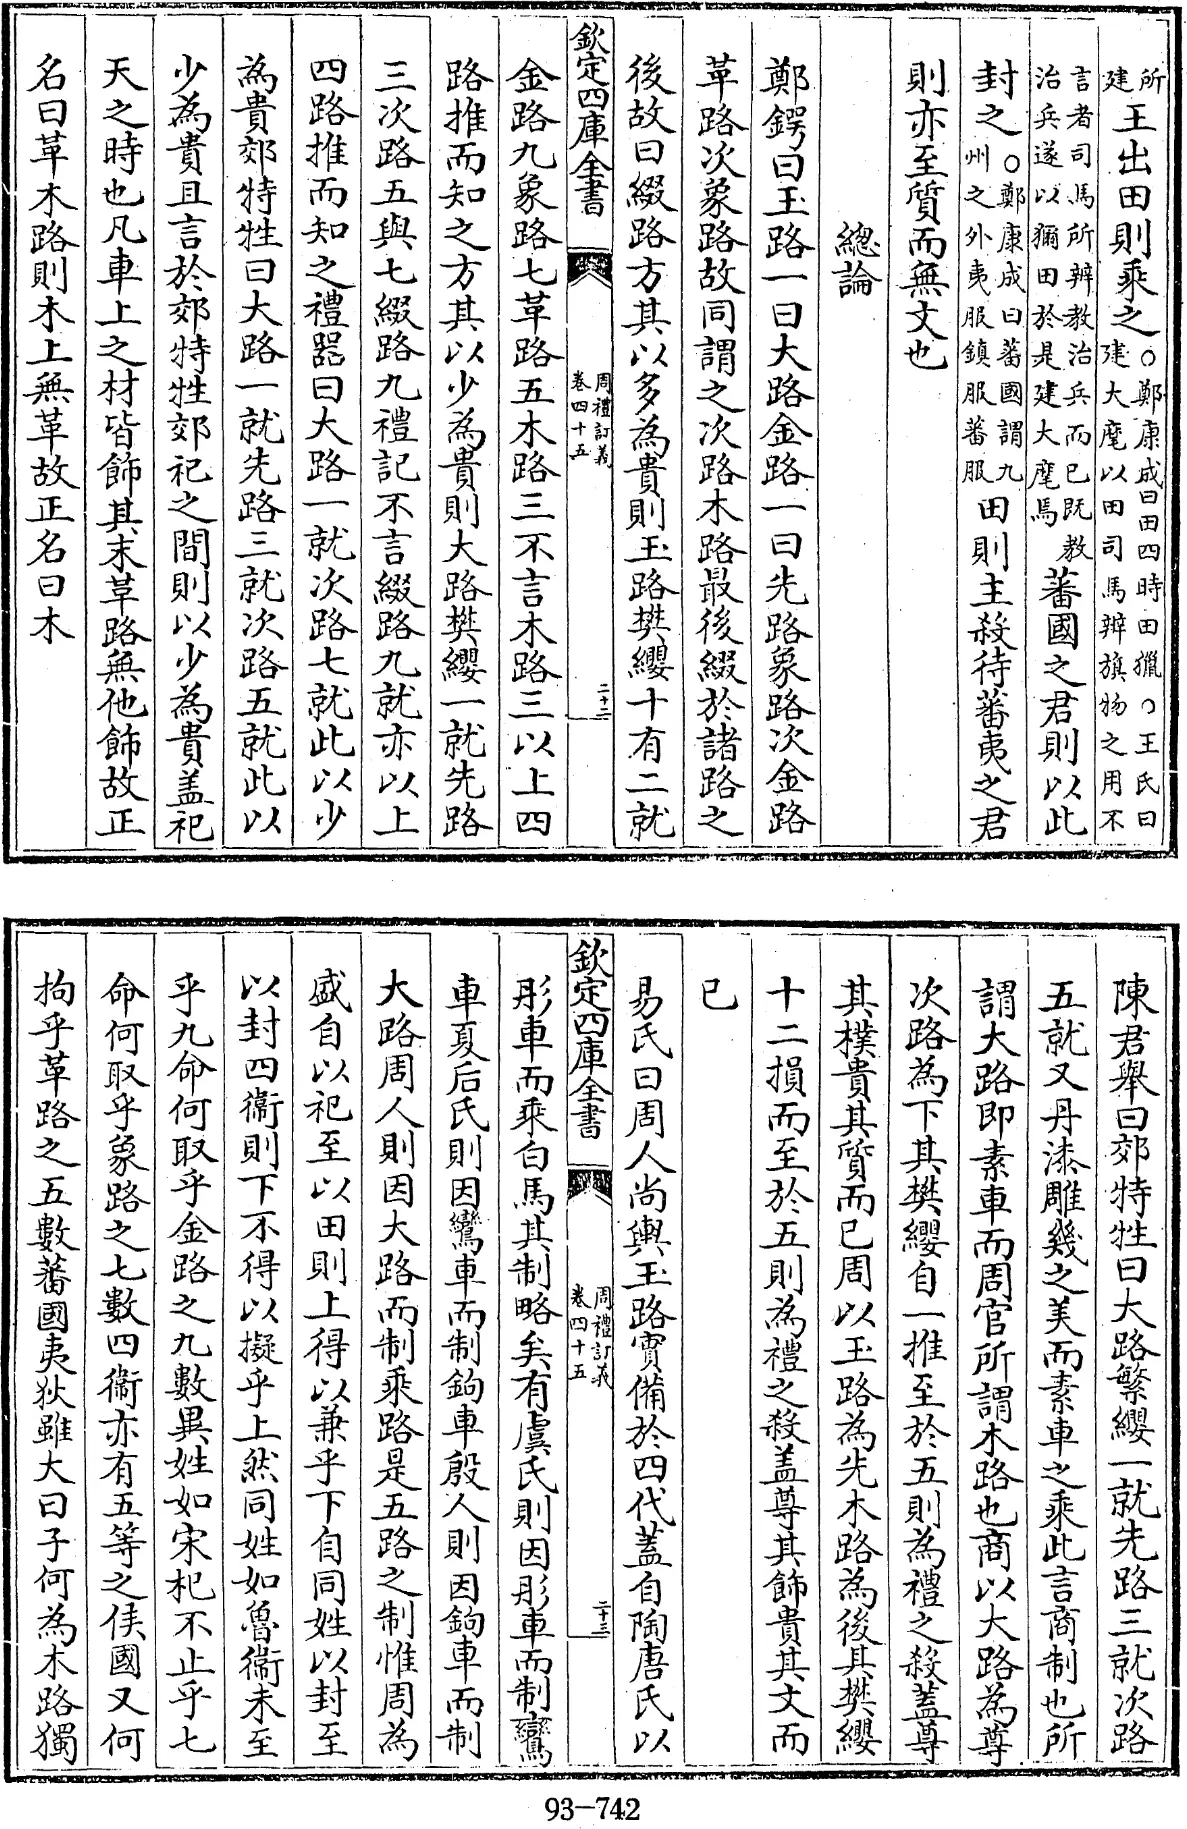 所建王出田則乘之○鄭康成曰田四時田獵○王氏曰建大麾以田司馬辨旗物之用不
言者司馬所辨教治兵而已既教治兵遂以獮田於是建大麾焉蕃國之君則以此
封之○鄭康成曰蕃國謂九州之外夷服鎮服蕃服田則主殺待蕃夷之君
則亦至質而無文也
總論
鄭鍔曰玉路一曰大路金路一曰先路象路次金路
革路次象路故同謂之次路木路最後綴於諸路之
後故曰綴路方其以多為貴則玉路樊纓十有二就
欽定四庫全書 周禮訂義卷四十五 二十二
金路九象路七革路五木路三不言木路三以上四
路推而知之方其以少為貴則大路樊纓一就先路
三次路五與七綴路九禮記不言綴路九就亦以上
四路推而知之禮器曰大路一就次路七就此以少
為貴郊特牲曰大路一就先路三就次路五就此以
少為貴且言於郊特牲郊祀之間則以少為貴盖祀
天之時也凡車上之材皆飾其末革路無他飾故正
名曰革木路則木上無革故正名曰木
陳君舉曰郊特牲曰大路繁纓一就先路三就次路
五就又丹漆雕幾之美而素車之乘此言商制也所
謂大路即素車而周官所謂木路也商以大路為尊
次路為下其樊纓自一推至於五則為禮之殺蓋尊
其樸貴其質而已周以玉路為先木路為後其樊纓
十二損而至於五則為禮之殺盖尊其飾貴其文而
已
易氏曰周人尚輿玉路實備於四代蓋自陶唐氏以
欽定四庫全書 周禮訂義卷四十五 二十三
彤車而乘白馬其制略矣有虞氏則因彤車而制鸞
車夏后氏則因鸞車而制鉤車殷人則因鉤車而制
大路周人則因大路而制乘路是五路之制惟周為
盛自以祀至以田則上得以兼乎下自同姓以封至
以封四衞則下不得以擬乎上然同姓如魯衞未至
乎九命何取乎金路之九數異姓如宋杞不止乎七
命何取乎象路之七數四衞亦有五等之侯國又何
拘乎革路之五數蕃國夷狄雖大曰子何為木路獨
93-742